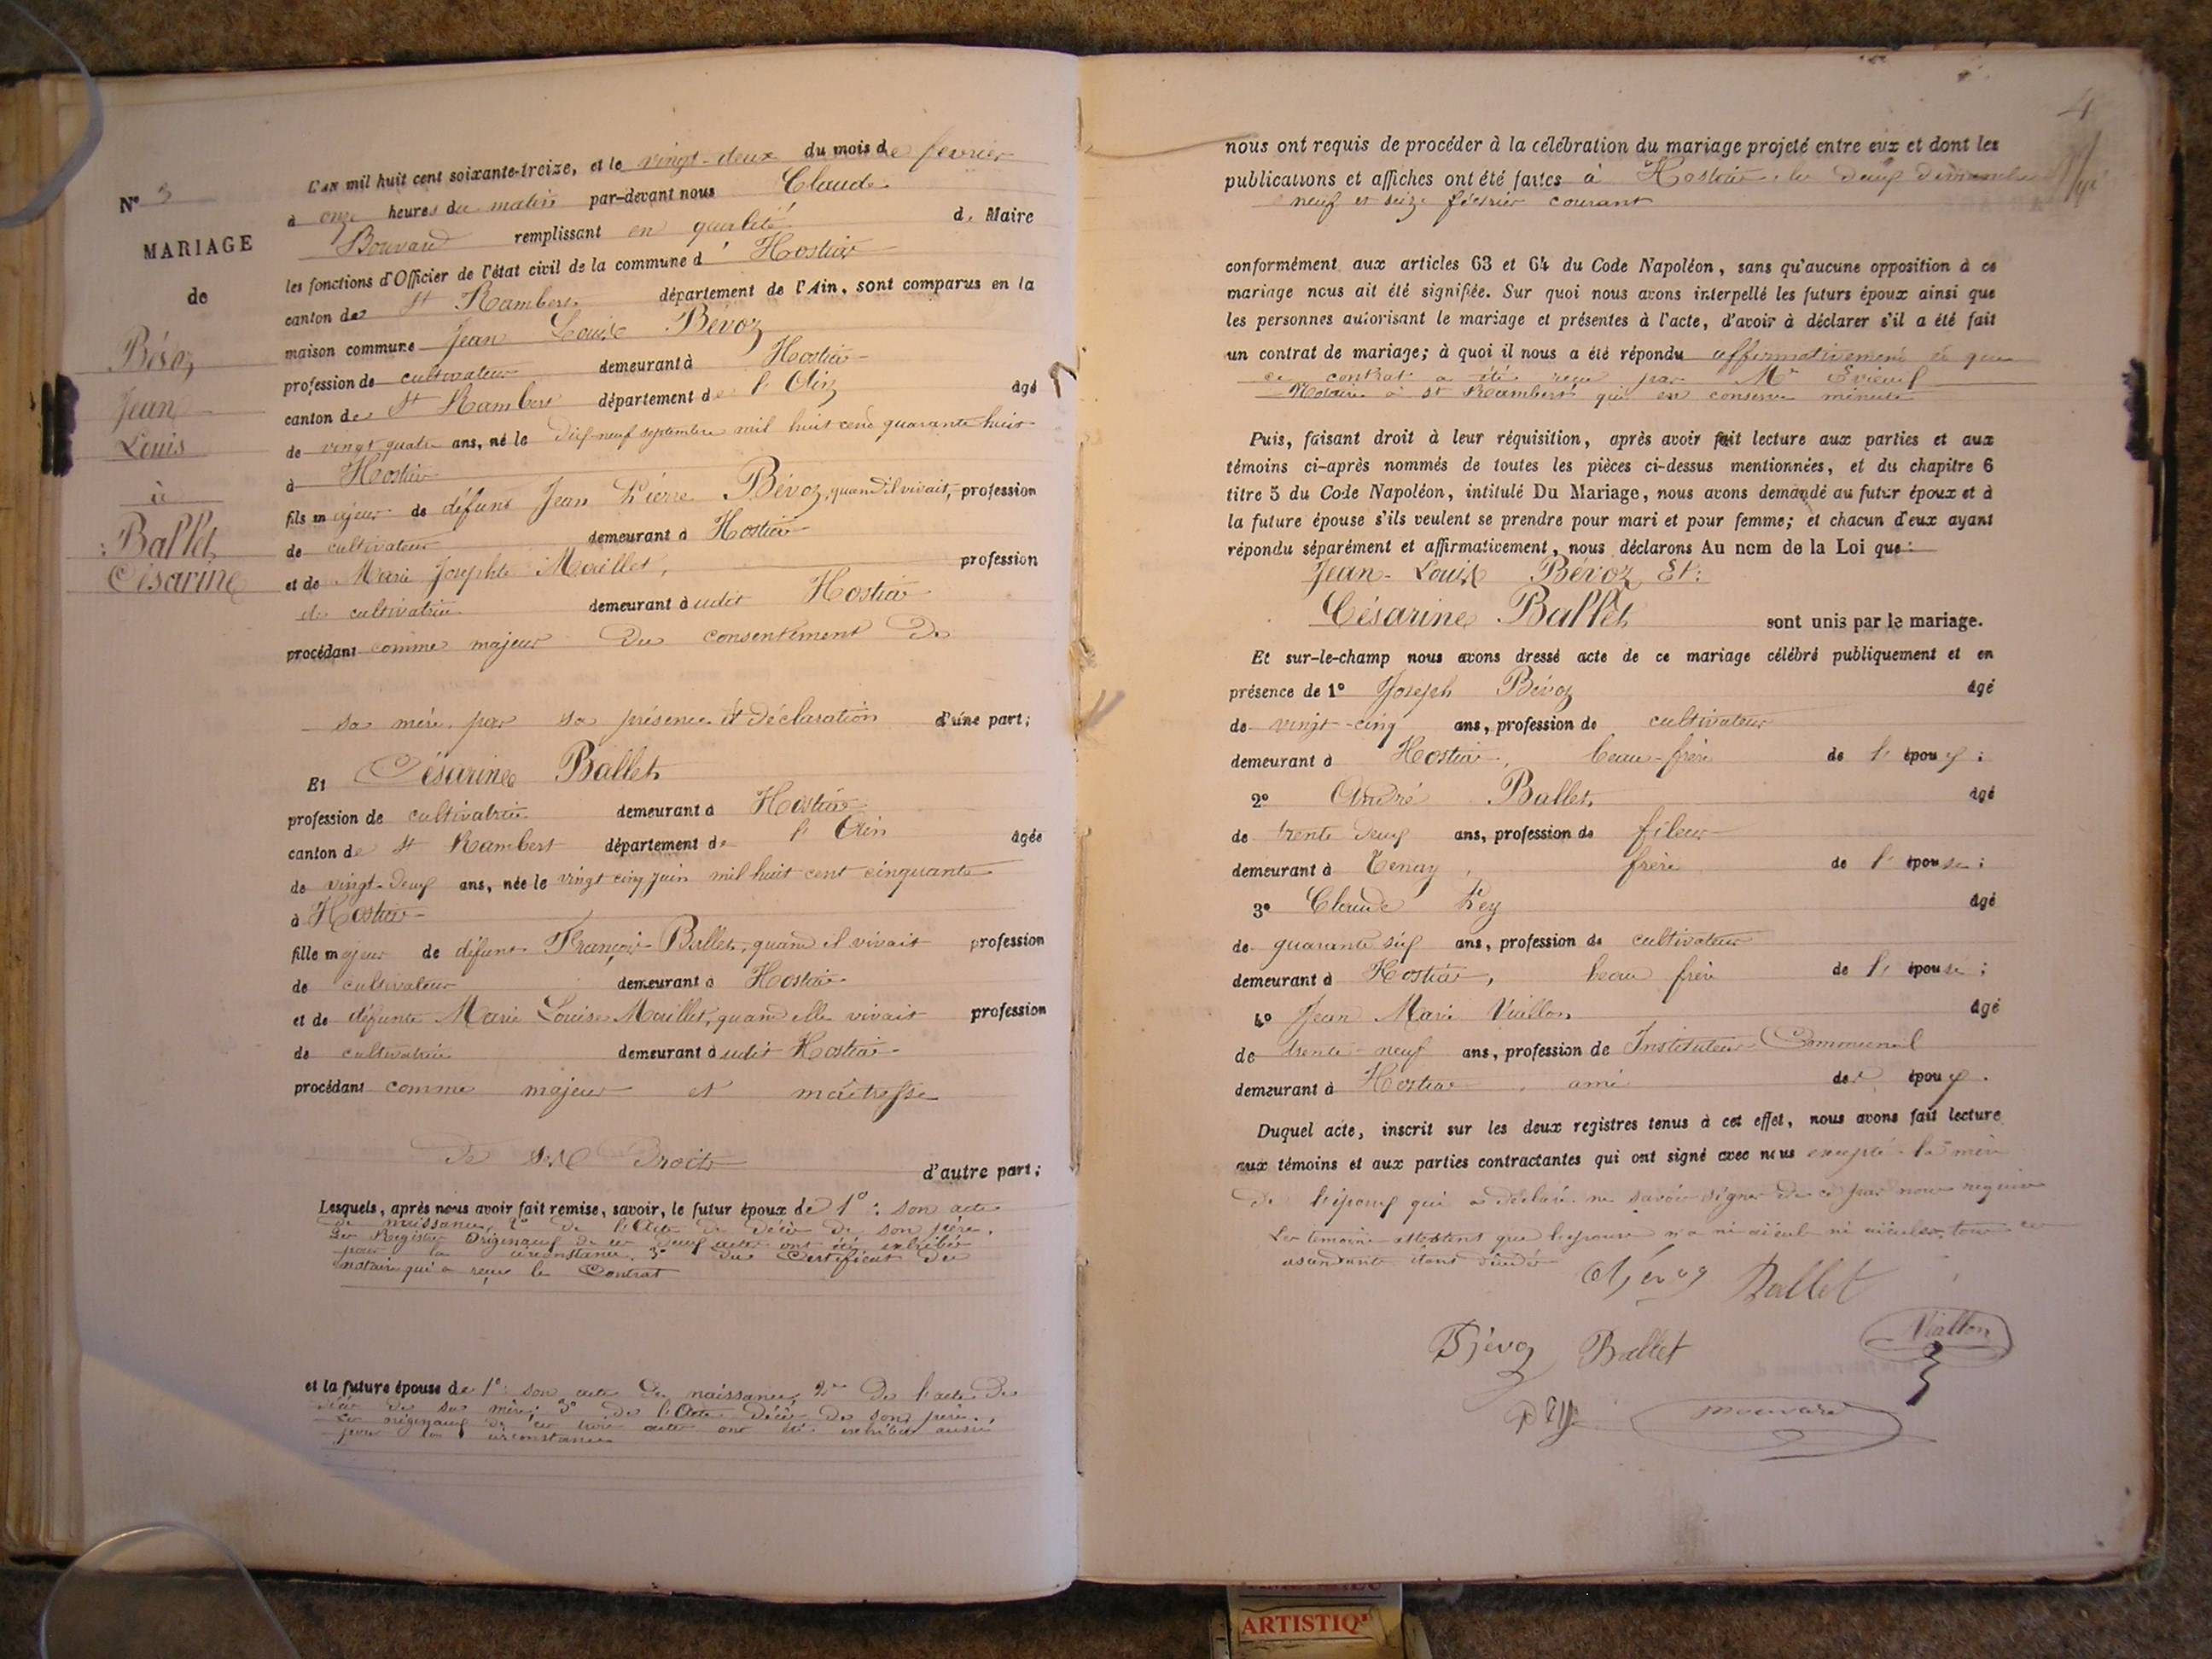 N° 3
MARIAGE
de
Bévoz
Jean
Louis
à
Ballet
Césarine
L'AN mil huit cent soixante-treize, et le vingt-deux du mois de fevrier
à onze heures du matin par-devant nous Claude
Bouvard remplissant en qualité de Maire
les fonctions d'Officier de l'état civil de la commune d' Hostiaz
canton de St Rambert département de l'Ain, sont comparus en la
maison commune Jean Louis Bévoz
profession de cultivateur demeurant à Hostiaz
canton de St Rambert département de l'Ain âgé
de vingt quatre ans, né le dix-neuf septembre mil huit cent quarante huit
à Hostiaz
fils majeur de défunt Jean Pierre Bévoz, quand il vivait, profession
de cultivateur demeurant à Hostiaz
et de Marie Josephte Maillet, profession
de cultivatrice demeurant à udit Hostiaz
procédant comme majeur du consentement de
sa mère par sa présence et déclaration d'une part;
Et Césarine Ballet
profession de cultivatrice demeurant à Hostiaz
canton de St Rambert département de l'Ain âgée
de vingt-deux ans, née le vingt cinq juin mil huit cent cinquante
à Hostiaz
fille majeur de défunt François Ballet, quand il vivait profession
de cultivateur demeurant à Hostiaz
et de défunte Marie Louise Maillet, quand elle vivait profession
de cultivatrice demeurant à udit Hostiaz
procédant comme majeur et maîtresse
de ses droits d'autre part;
Lesquels, après nous avoir fait remise, savoir, le futur époux de 1°: son acte
de naissance, 2° de l'Acte de décès de son père.
Les Registres Originaux de ces deux actes ont été exhibés
pour la circonstance. 3° du Certificat du
notaire qui a reçu le Contrat
et la future épouse de 1°: son acte de naissance, 2° de l'acte de
décès de sa mère; 3° de l'Acte décès de son père.
Les originaux de ces trois actes ont été exhibés aussi
pour la circonstance
4
nous ont requis de procéder à la célébration du mariage projeté entre eux et dont les
publications et affiches ont été faites à Hostiaz les deux dimanches
neuf et seize février courant
conformément aux articles 63 et 64 du Code Napoléon, sans qu'aucune opposition à ce
mariage nous ait été signifiée. Sur quoi nous avons interpellé les futurs époux ainsi que
les personnes autorisant le mariage et présentes à l'acte, d'avoir à déclarer s'il a été fait
un contrat de mariage; à quoi il nous a été répondu affirmativement et que
ce contrat a été reçu par Mr
Notaire à St Rambert qui en conserve minute
Puis, faisant droit à leur réquisition, après avoir fait lecture aux parties et aux
témoins ci-après nommés de toutes les pièces ci-dessus mentionnées, et du chapitre 6
titre 5 du Code Napoléon, intitulé Du Mariage, nous avons demandé au futur époux et à
la future épouse s'ils veulent se prendre pour mari et pour femme; et chacun d'eux ayant
répondu séparément et affirmativement, nous déclarons Au nom de la Loi que:
Jean-Louis Bévoz Et:
Césarine Ballet sont unis par le mariage.
Et sur-le-champ nous avons dressé acte de ce mariage célébré publiquement et en
présence de 1° Joseph Bévoz âgé
de vingt-cinq ans, profession de cultivateur
demeurant à Hostiaz, beau-frère de l'époux;
2° André Ballet âgé
de trente deux ans, profession de fileur
demeurant à Tenay, frère de l'épouse;
3° Claude Pey âgé
de quarante six ans, profession de cultivateur
demeurant à Hostiaz, beau frère de l'épouse;
4° Jean Marie Viallon âgé
de trente-neuf ans, profession de Instituteur Communal
demeurant à Hostiaz, ami de l'époux.
Duquel acte, inscrit sur les deux registres tenus à cet effet, nous avons fait lecture
aux témoins et aux parties contractantes qui ont signé avec nous excepté la mère
de l'époux qui a déclaré ne savoir signer de ce par nous requise
Les témoins attestent que l'épouse n'a ni aïeul ni aïeules, tous ces
ascendants étant décédés
Bévoz Ballet
Bévoz Ballet Viallon
pey Bouvard
ARTISTIQ